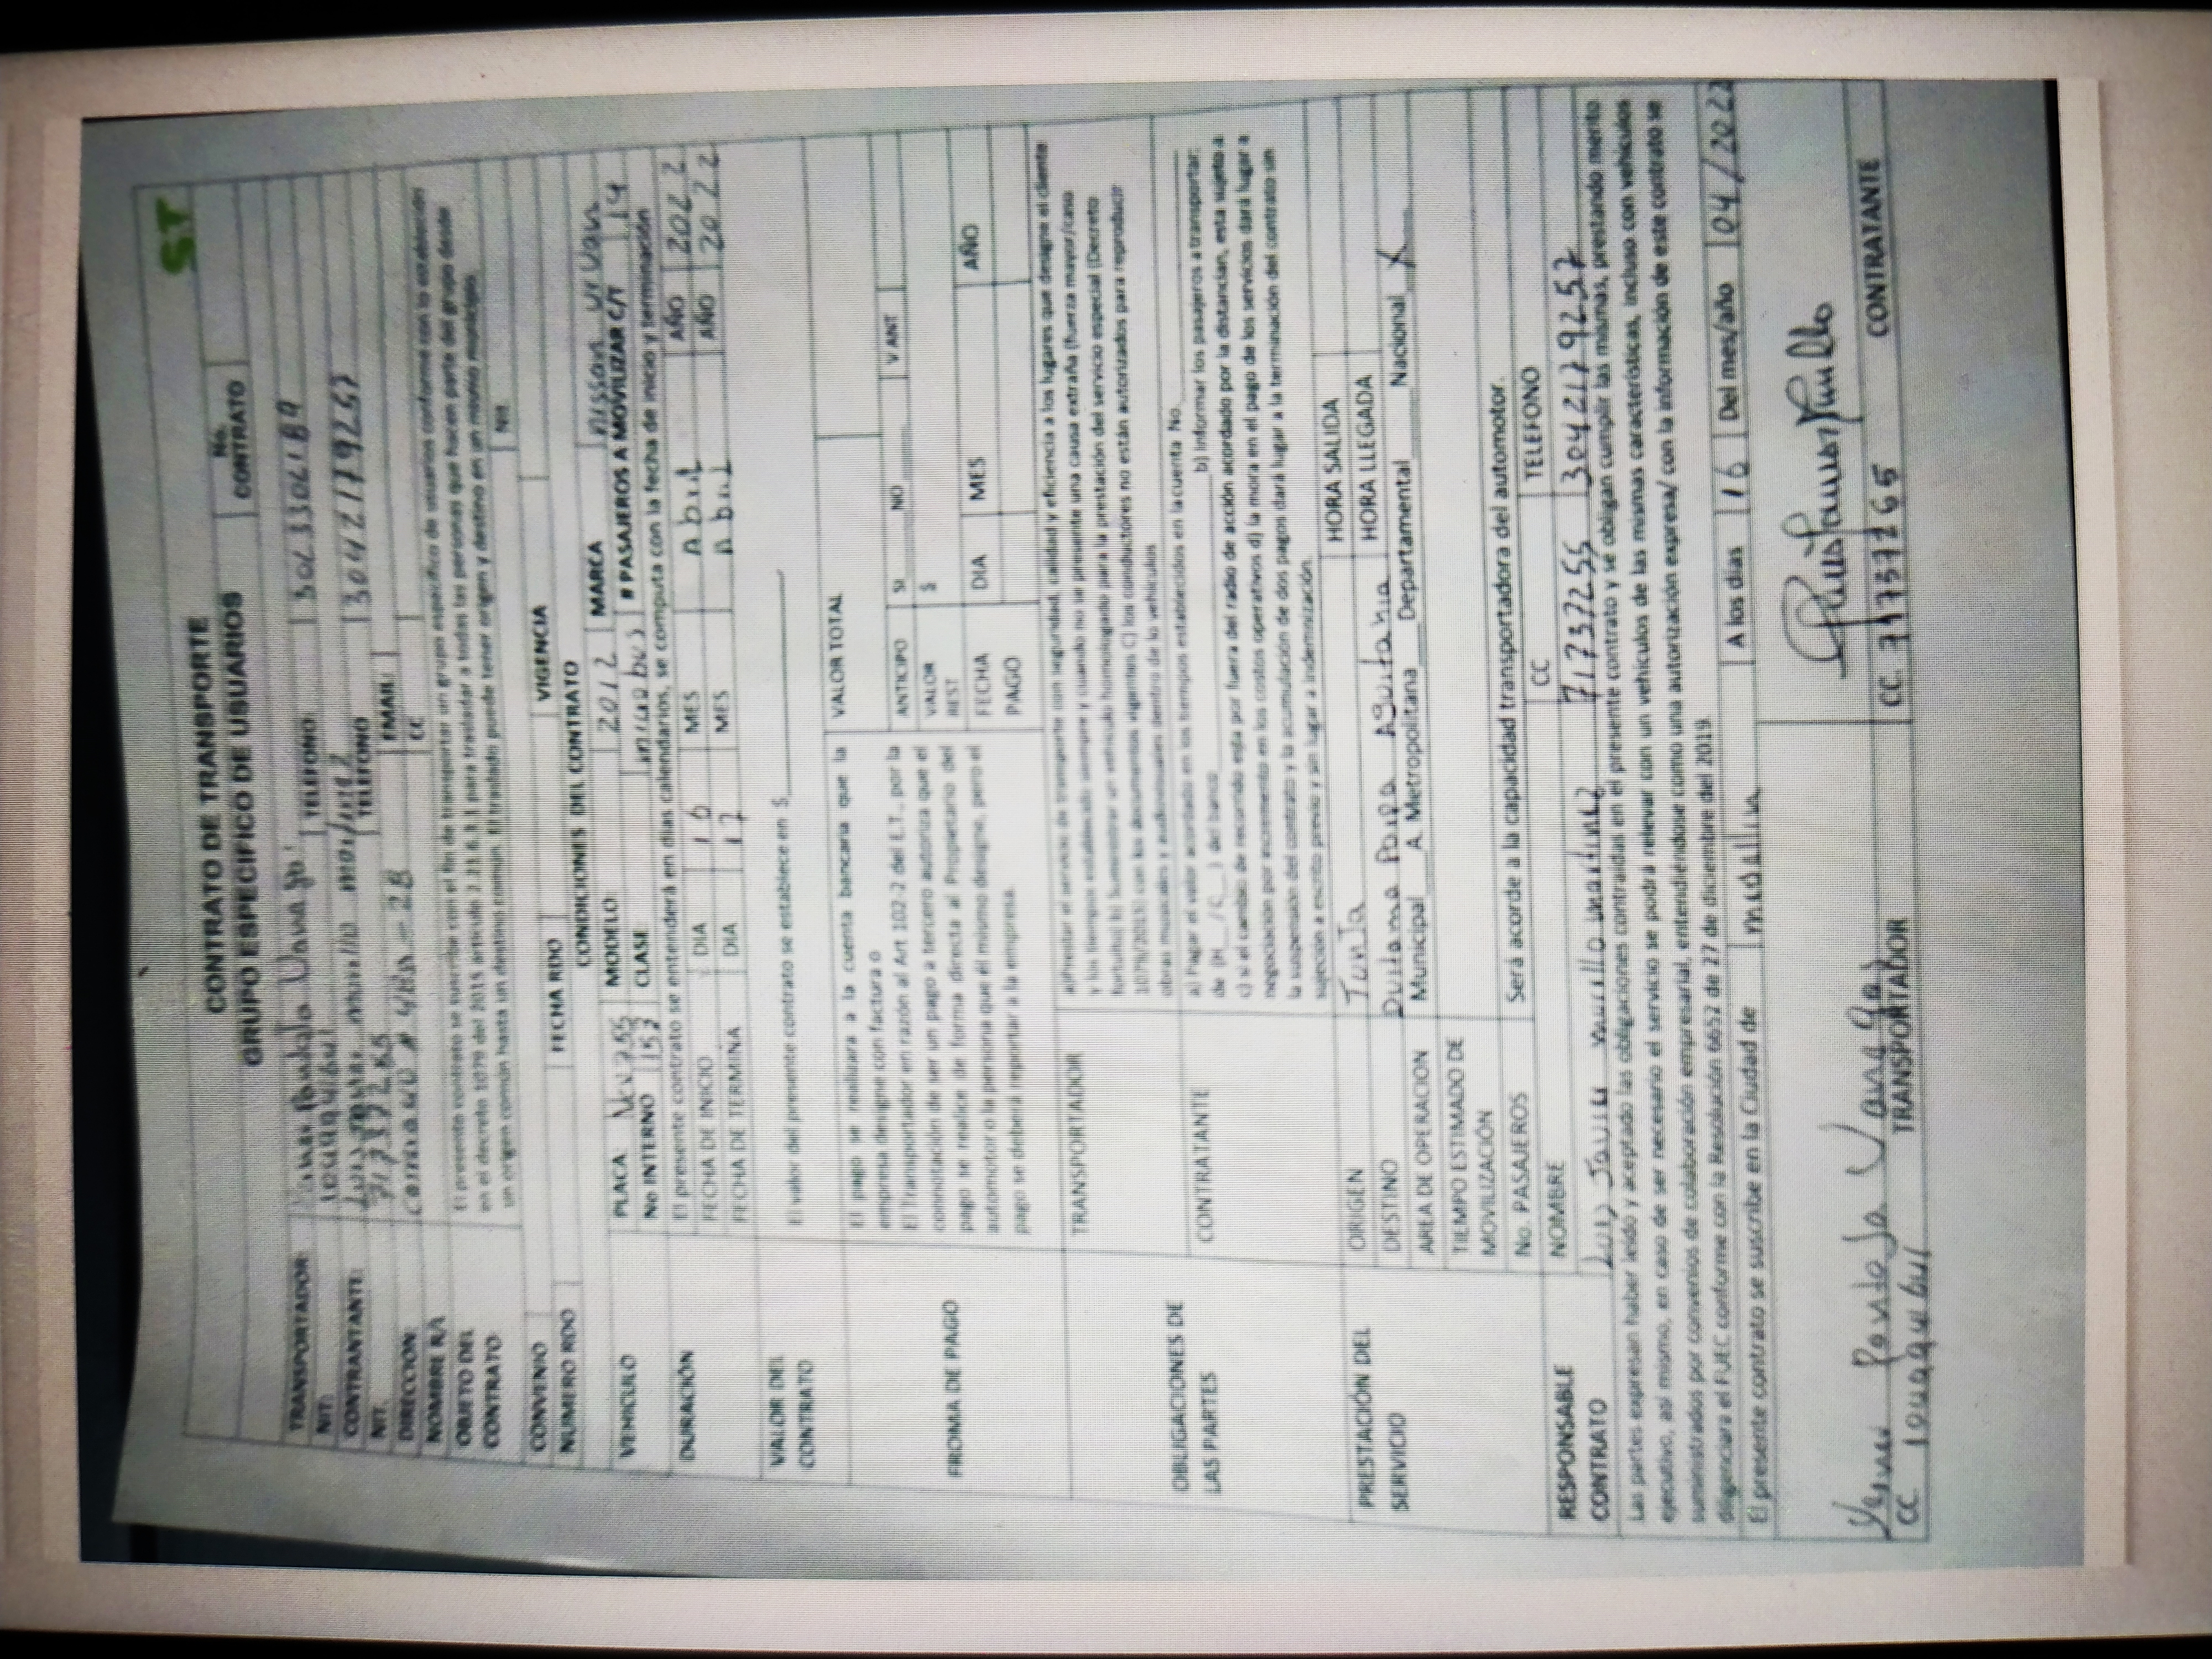 ST
CONTRATO DE TRANSPORTE
GRUPO ESPECIFICO DE USUARIOS
No. CONTRATO
TRANSPORTADOR TELEFONO
NIT:
CONTRANTANTE: TELEFONO 3042179257
NIT.
DIRECCION EMAIL:
NOMBRE R/L CC
OBJETO DEL CONTRATO
El presente contrato se suscribe con el fin de transportar un grupo especifico de usuarios conforme con lo establecido
en el decreto 1079 del 2015 articulo 2.2.1.6.3.1 para trasladar a todas las personas que hacen parte del grupo desde
un origen común hasta un destino común. El traslado puede tener origen y destino en un mismo municipio.
CONVENIO Nit
NUMERO RDO FECHA RDO VIGENCIA
CONDICIONES DEL CONTRATO
VEHICULO
PLACA MODELO 2012 MARCA nissan urvan
No INTERNO 153 CLASE # PASAJEROS A MOVILIZAR C/T 19
DURACIÓN
El presente contrato se entenderá en días calendarios, se computa con la fecha de inicio y terminación
FECHA DE INICIO DIA 16 MES Abril AÑO 2022
FECHA DE TERMINA DIA 17 MES Abril AÑO 2022
VALOR DEL CONTRATO
El valor del presente contrato se establece en $
FROMA DE PAGO
El pago se realizara a la cuenta bancaria que la
empresa designe con factura o
El Transportador en razón al Art 102-2 del E.T., por la
connotación de ser un pago a tercero autoriza que el
pago se realice de forma directa al Propietario del
automotor o la persona que él mismo designe, pero el
pago se deberá reportar a la empresa.
VALOR TOTAL
ANTICIPO SI NO V ANT
VALOR REST $
FECHA PAGO DIA MES AÑO
OBLIGACIONES DE LAS PARTES
TRANSPORTADOR
a)Prestar el servicio de transporte con seguridad, calidad y eficiencia a los lugares que designe el cliente
y los tiempos establecido siempre y cuando no se presente una causa extraña (fuerza mayor/caso
fortuito) b) Suministrar un vehiculo homologado para la prestación del servicio especial (Decreto
1079/2015) con los documentos vigentes C) los conductores no están autorizados para reproducir
obras musicales y audiovisuales dentro de lo vehículos
CONTRATANTE
a) Pagar el valor acordado en los tiempos establecidos en la cuenta No.
de (H__/C__) del banco b) Informar los pasajeros a transportar:
c) si el cambio de recorrido esta por fuera del radio de acción acordado por la distancian, esta sujeto a
negociación por incremento en los costos operativos d) la mora en el pago de los servicios dará lugar a
la suspensión del contrato y la acumulación de dos pagos dará lugar a la terminación del contrato sin
sujeción a escrito previo y sin lugar a indemnización.
PRESTACIÓN DEL SERVICIO
ORIGEN Tunja HORA SALIDA
DESTINO Duitama Paipa Aguitania HORA LLEGADA
AREA DE OPERACION Municipal A. Metropolitana Departamental Nacional X
TIEMPO ESTIMADO DE MOVILIZACIÓN
No. PASAJEROS Será acorde a la capacidad transportadora del automotor.
RESPONSABLE CONTRATO
NOMBRE CC TELEFONO
Luis Javier Murillo Martinez 71737255 3042179257
Las partes expresan haber leído y aceptado las obligaciones contraídas en el presente contrato y se obligan cumplir las mismas, prestando merito
ejecutivo, así mismo, en caso de ser necesario el servicio se podrá relevar con un vehículos de las mismas características, incluso con vehículos
suministrados por convenios de colaboración empresarial, entendiéndose como una autorización expresa/ con la información de este contrato se
diligenciara el FUEC conforme con la Resolución 6652 de 27 de diciembre del 2019.
El presente contrato se suscribe en la Ciudad de medellin A los días 16 Del mes/año 04/2022
CC
TRANSPORTADOR
CC. 71737265
CONTRATANTE